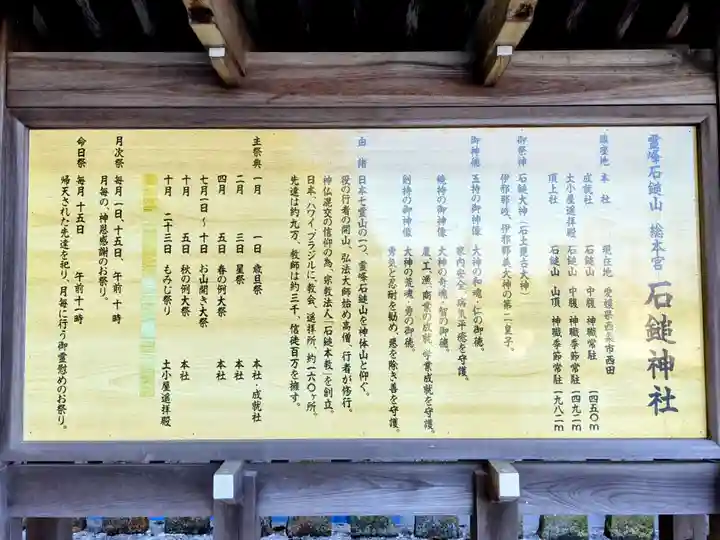 霊峰石鎚山 総本宮 石鎚神社
鎮座地 本社 現在地 愛媛県西条市西田
成就社 石鎚山 中腹 神職常駐 一四五〇m
土小屋遥拝殿 石鎚山 中腹 神職季節常駐 一四九二m
頂上社 石鎚山 山頂 神職季節常駐 一九八二m
御祭神 石鎚大神(石土毘古大神)
伊邪那岐、伊邪那美大神の第二皇子、
御神徳 玉持の御神像 大神の和魂、仁の御徳。
家内安全、病気平癒を守護。
鏡持の御神像 大神の奇魂、智の御徳。
農、工、漁、商業の成就、学業成就を守護。
剣持の御神像 大神の荒魂、勇の御徳。
勇気と忍耐を勧め、悪を除き善を守護。
由緒 日本七霊山の一つ、霊峰石鎚山を神体山と仰ぐ。
役の行者の開山、弘法大師始め高僧、行者が修行。
神仏混交の信仰の為、宗教法人「石鎚本教」を創立。
日本、ハワイ、ブラジルに、教会、遥拝所、約一六〇ヶ所。
先達は約九万、教師は約三千、信徒百万を擁す。
主祭典 一月 一日 歳旦祭 本社・成就社
二月 三日 星祭 本社
四月 五日 春の例大祭 本社
七月一日〜十日 お山開き大祭
十月 五日 秋の例大祭 本社
十月 二十三日 もみじ祭り 土小屋遥拝殿
月次祭 毎月一日、十五日、午前十時
月毎の、神恩感謝のお祭り。
命日祭 毎月十五日 午前十一時
帰天された先達を祀り、月毎に行う御霊慰めのお祭り。